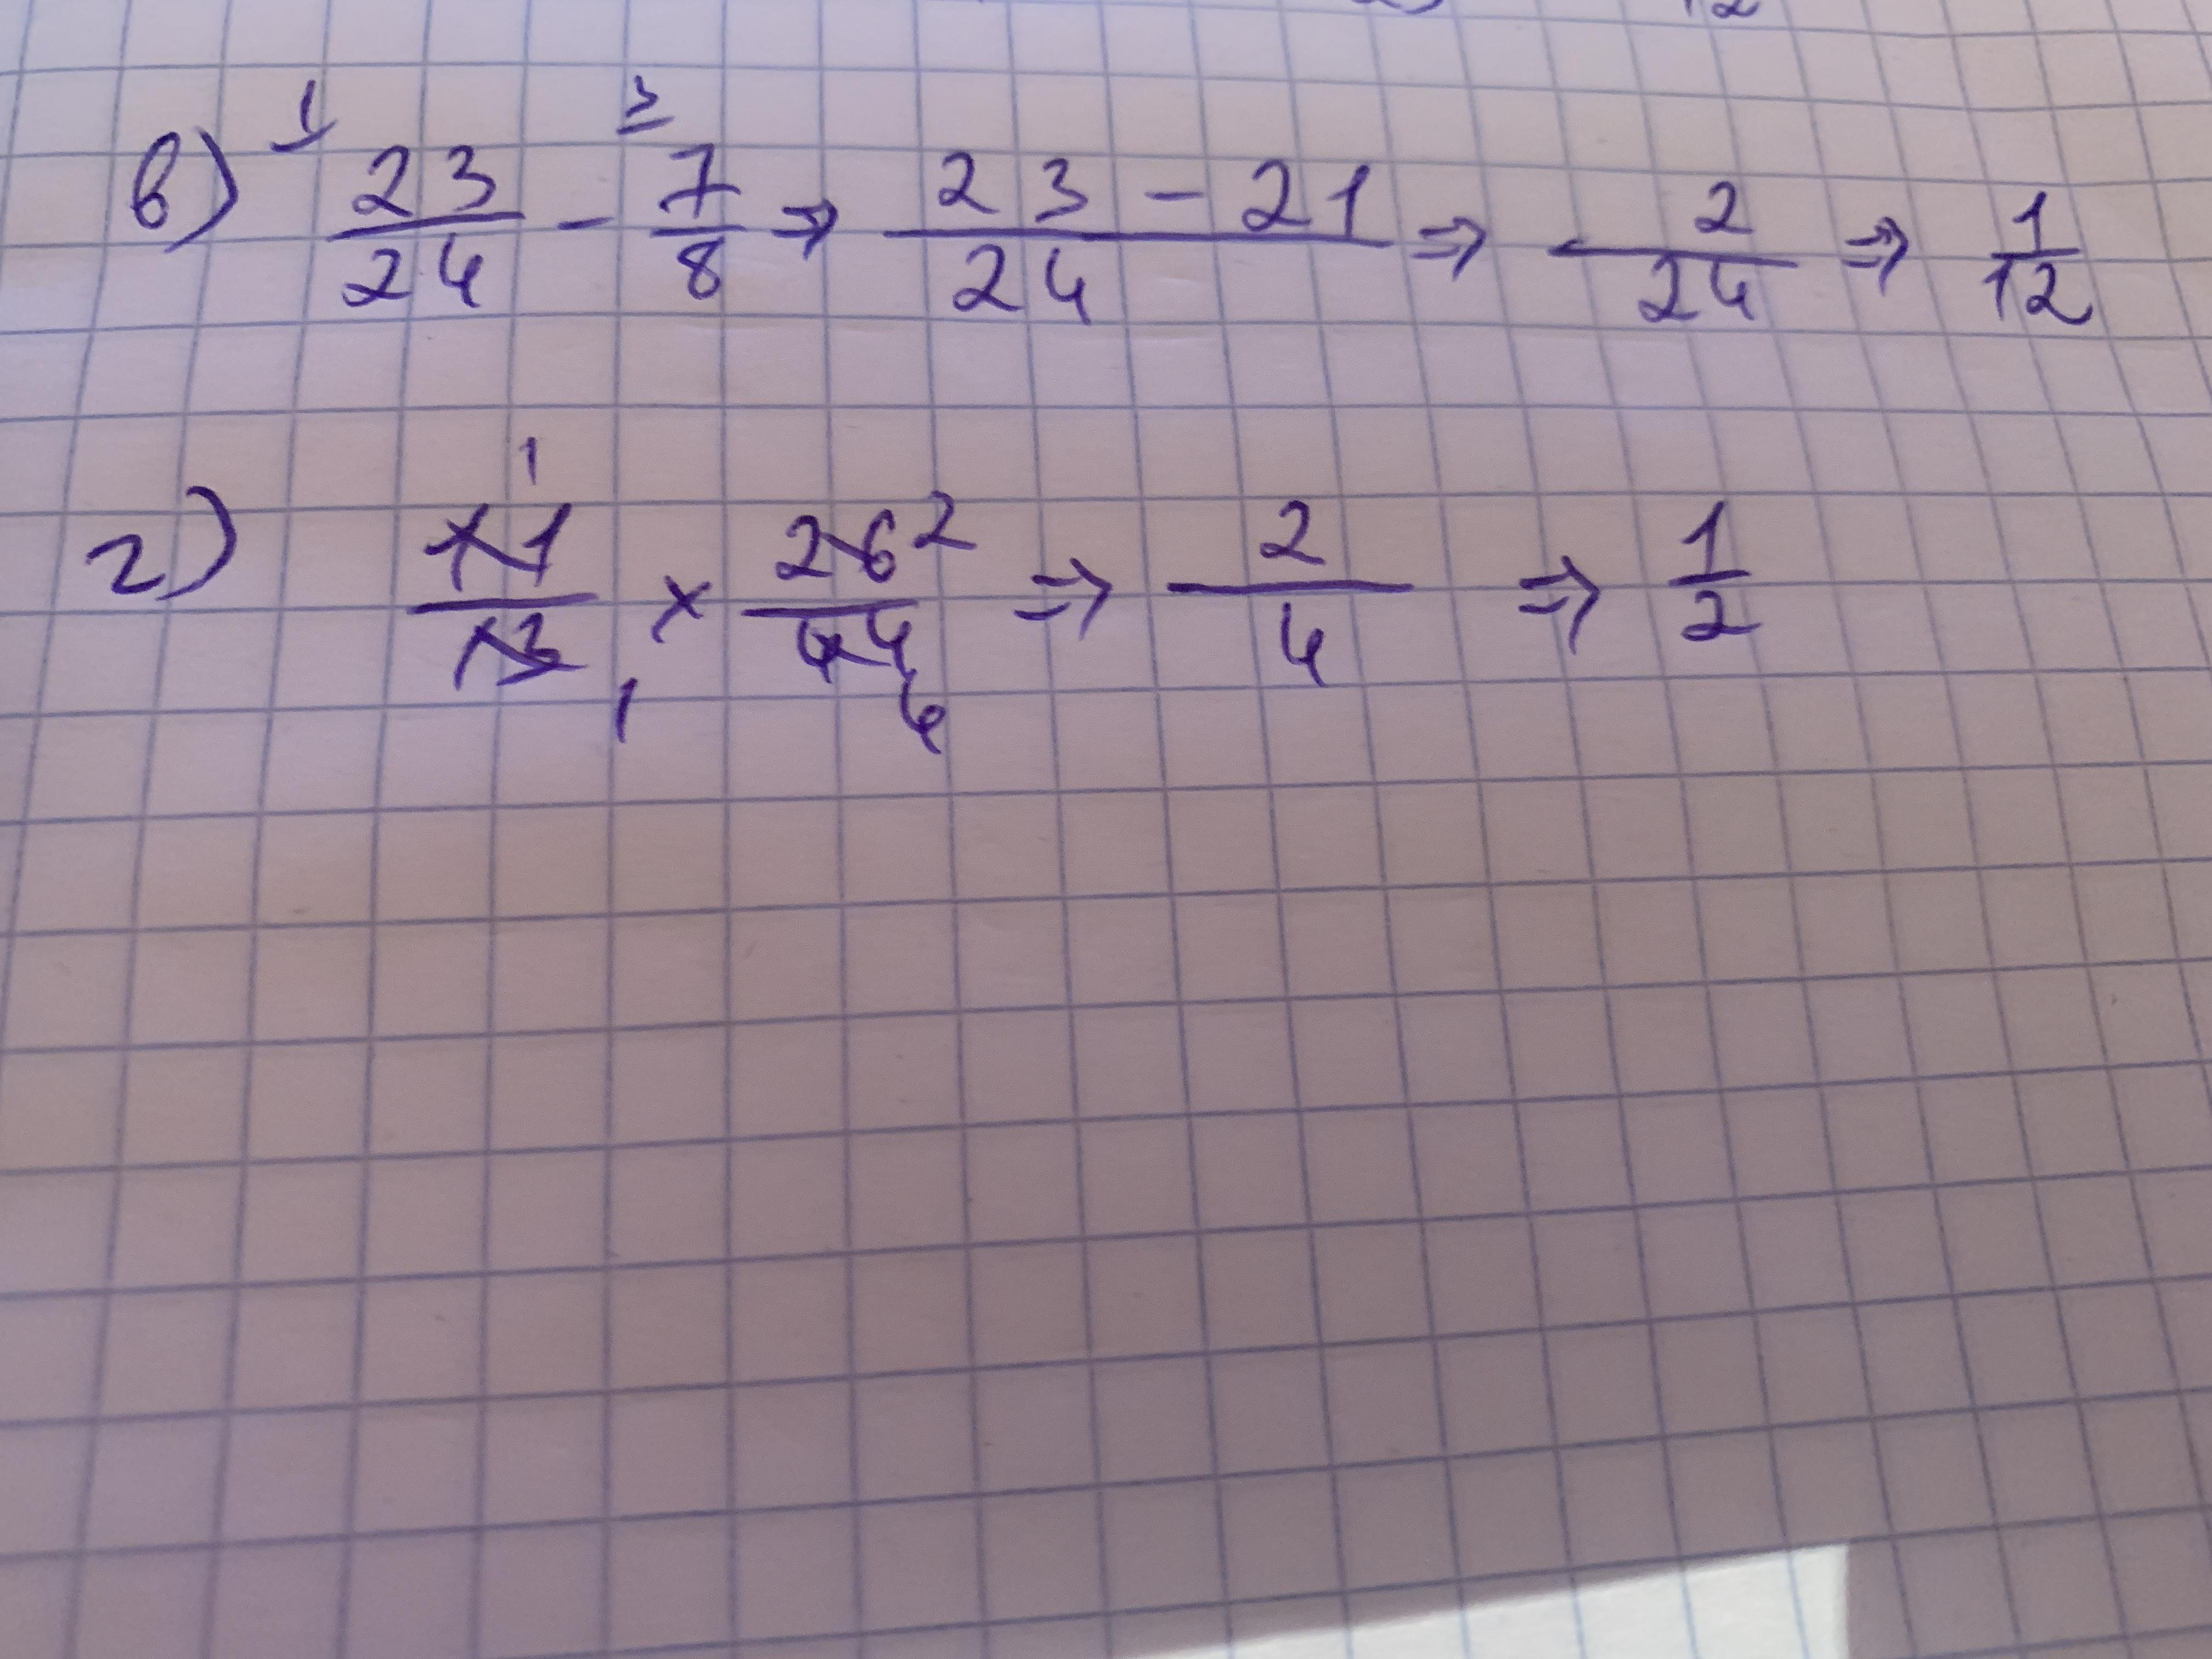 12
в) 1 23/24 - 3 7/8 ⇒ 23 - 21/24 ⇒ 2/24 ⇒ 1/12
г) 11 1/13 1 × 26 2/44 4 ⇒ 2/4 ⇒ 1/2